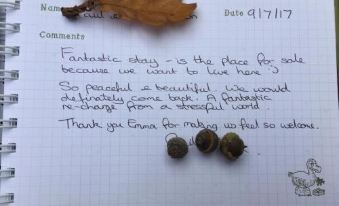 Name
Date 9/7/17
Comments
Fantastic stay - is the place for sale
because we want to live here :)
So peaceful & beautiful. We would
definitely come back. A fantastic
re-charge from a stressful world.
Thank you Emma for making us feel so welcome.